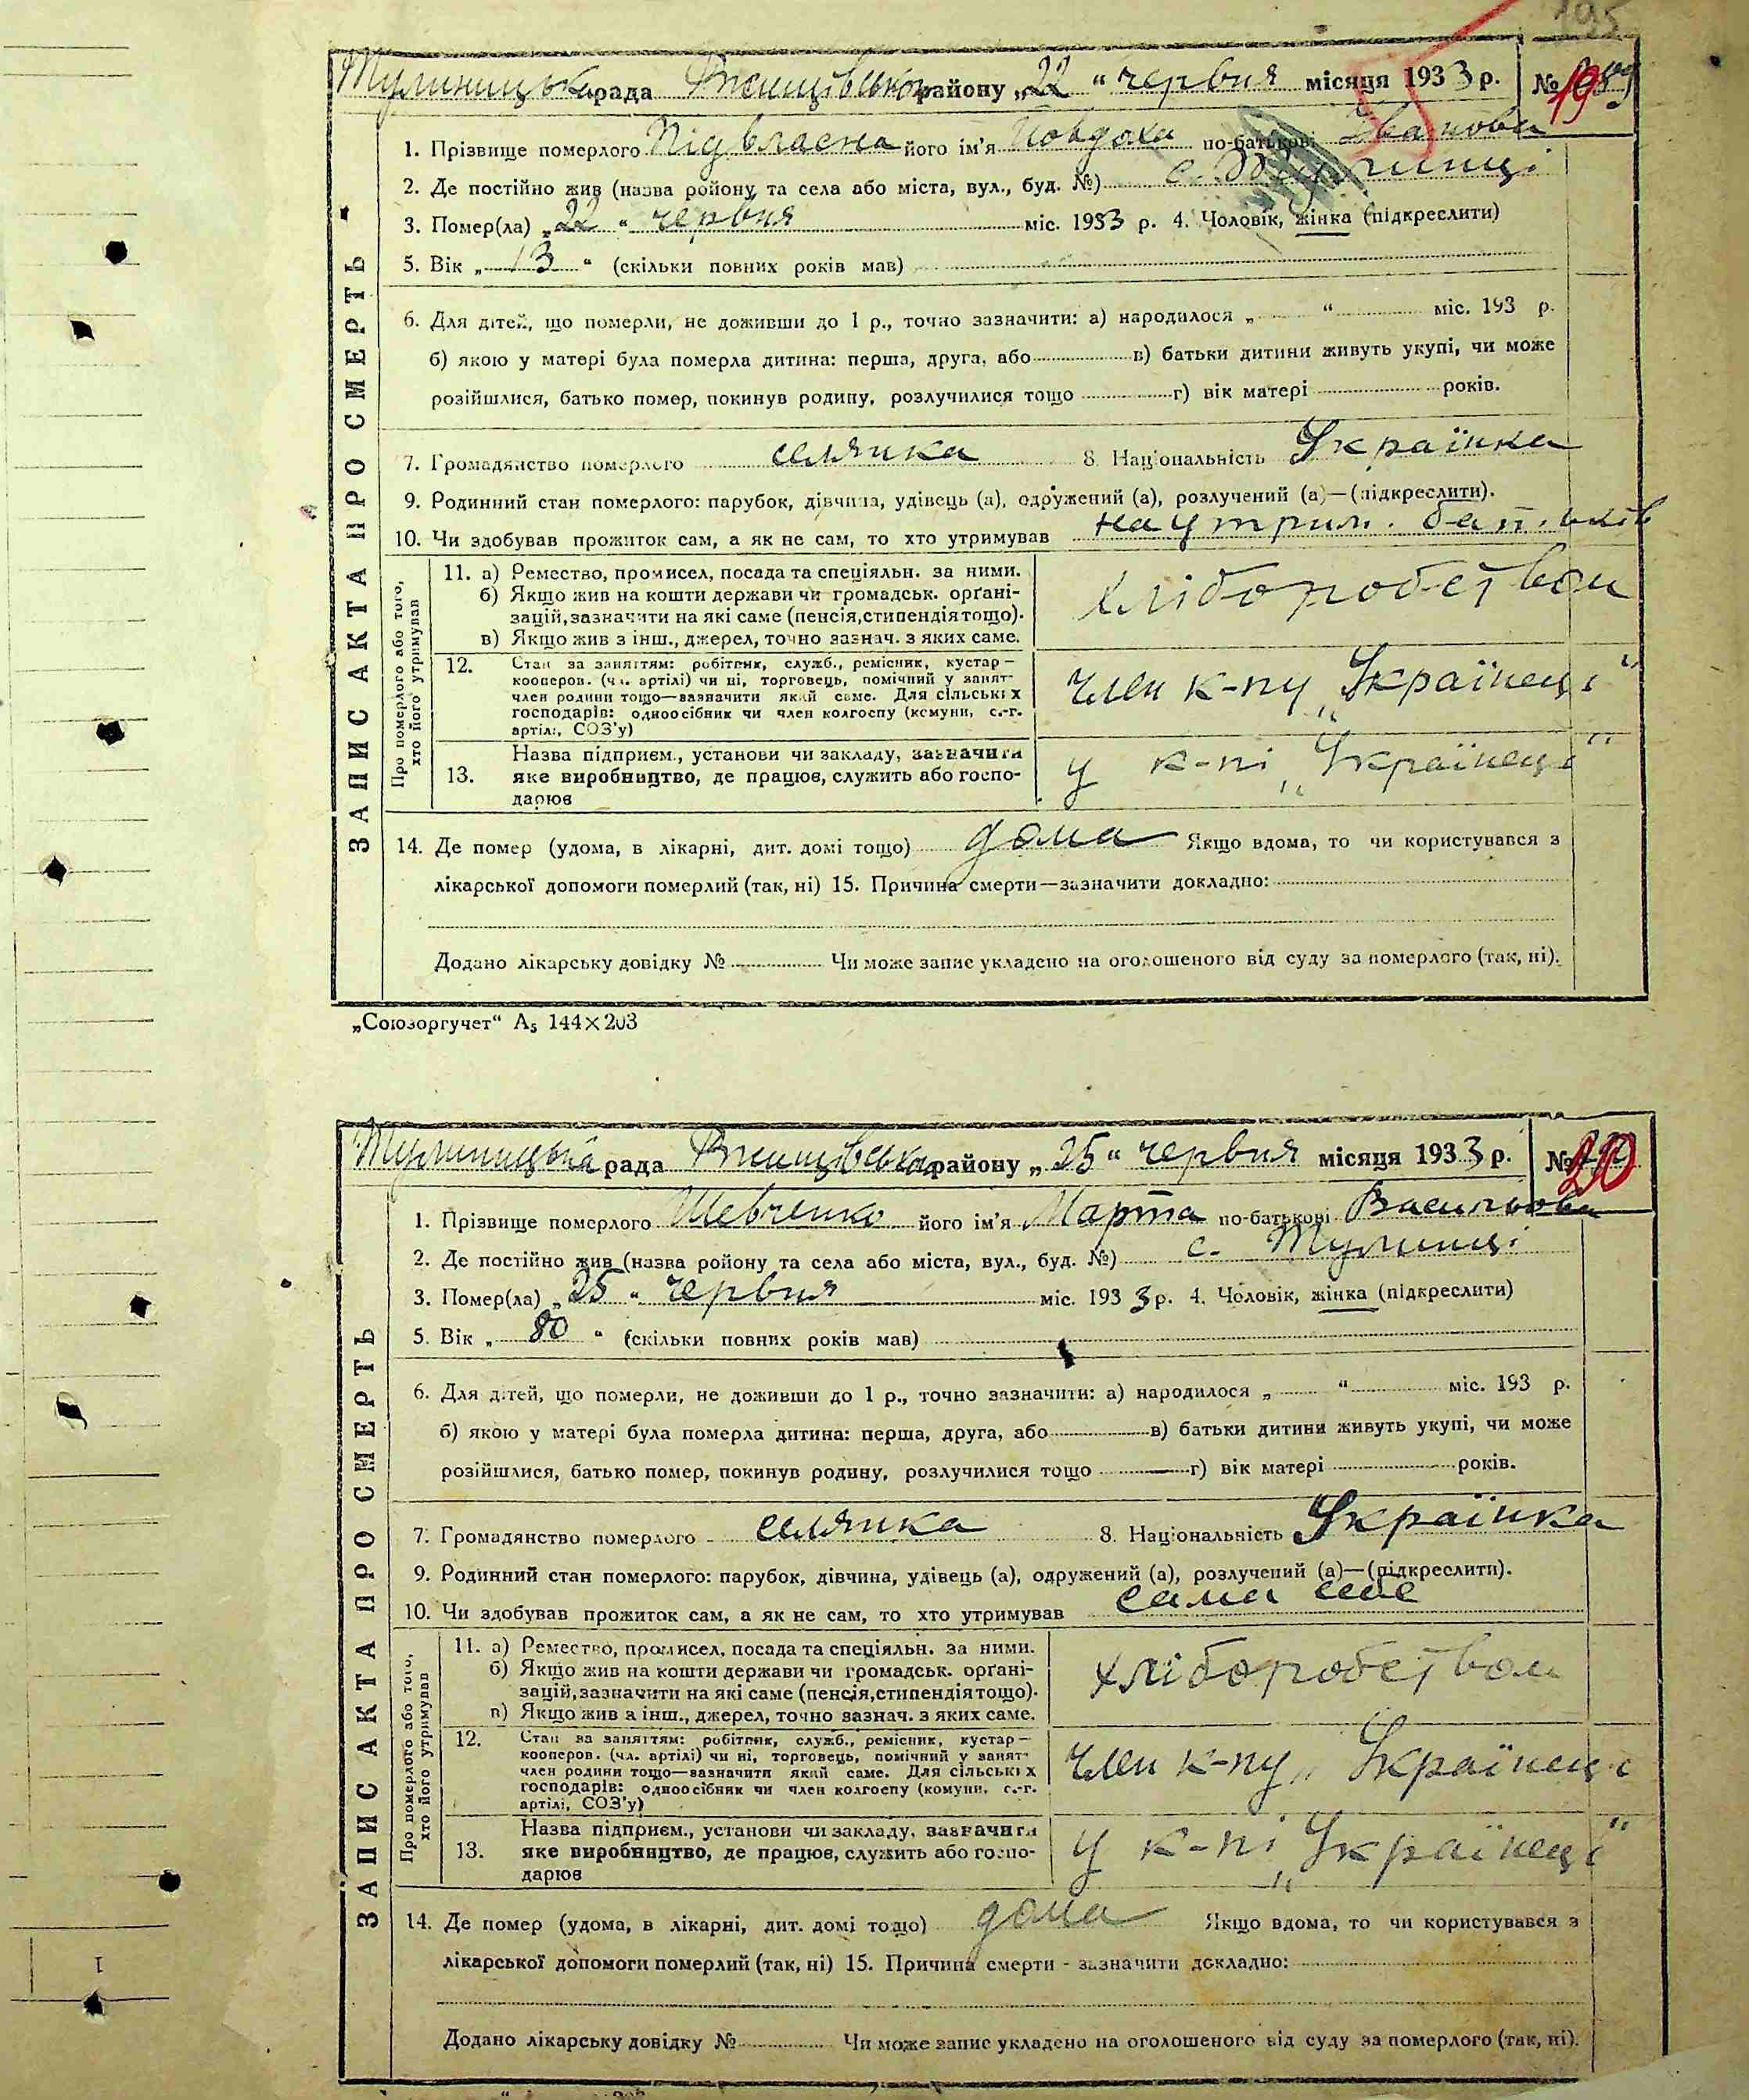 195
Тулиницька рада Ржищівського району „22“ червня місяця 1933 р. № 19
1. Прізвище померлого Підвласна його ім'я Повдоха по-батькові Іванова
2. Де постійно жив (назва ройону та села або міста, вул., буд. №) с. Тулинці
3. Помер(ла) „22“ червня міс. 1933 р. 4. Чоловік, жінка (підкреслити)
5. Вік „13“ (скільки повних років мав)
6. Для дітей, що померли, не доживши до 1 р., точно зазначити: а) народилося „ “ міс. 193 р.
б) якою у матері була померла дитина: перша, друга, або в) батьки дитини живуть укупі, чи може
розійшлися, батько помер, покинув родину, розлучилися тощо г) вік матері років.
7. Громадянство померлого селянка 8. Національність Українка
9. Родинний стан померлого: парубок, дівчина, удівець (а), одружений (а), розлучений (а)—(підкреслити).
10. Чи здобував прожиток сам, а як не сам, то хто утримував на утрим. батьків
ЗАПИС АКТА ПРО СМЕРТЬ
Про померлого або того, хто його утримував
11. а) Ремество, промисел, посада та спеціяльн. за ними.
б) Якщо жив на кошти держави чи громадськ. орґані-
зацій, зазначити на які саме (пенсія, стипендія тощо).
в) Якщо жив з інш., джерел, точно зазнач. з яких саме.
хліборобством
12. Стан за заняттям: робітник, служб., ремісник, кустар—
кооперов. (чл. артілі) чи ні, торговець, помічний у занят-
член родини тощо—зазначити який саме. Для сільських
господарів: одноосібник чи член колгоспу (комуни, с.-г.
артілі, СОЗ'у)
член к-пу „Українець“
13. Назва підприєм., установи чи закладу, зазначити
яке виробництво, де працює, служить або госпо-
дарює
у к-пі „Українець“
14. Де помер (удома, в лікарні, дит. домі тощо) дома Якщо вдома, то чи користувався з
лікарської допомоги померлий (так, ні) 15. Причина смерти—зазначити докладно:
Додано лікарську довідку № Чи може запис укладено на оголошеного від суду за померлого (так, ні).
„Союзоргучет“ А₅ 144×203
Тулиницька рада Ржищівська району „25“ червня місяця 1933 р. № 20
1. Прізвище померлого Шевченко його ім'я Марта по-батькові Васильова
2. Де постійно жив (назва ройону та села або міста, вул., буд. №) с. Тулинці
3. Помер(ла) „25“ червня міс. 1933 р. 4. Чоловік, жінка (підкреслити)
5. Вік „80“ (скільки повних років мав)
6. Для дітей, що померли, не доживши до 1 р., точно зазначити: а) народилося „ “ міс. 193 р.
б) якою у матері була померла дитина: перша, друга, або в) батьки дитини живуть укупі, чи може
розійшлися, батько помер, покинув родину, розлучилися тощо г) вік матері років.
7. Громадянство померлого селянка 8. Національність Українка
9. Родинний стан померлого: парубок, дівчина, удівець (а), одружений (а), розлучений (а)—(підкреслити).
10. Чи здобував прожиток сам, а як не сам, то хто утримував сама себе
ЗАПИС АКТА ПРО СМЕРТЬ
Про померлого або того, хто його утримував
11. а) Ремество, промисел, посада та спеціяльн. за ними.
б) Якщо жив на кошти держави чи громадськ. орґані-
зацій, зазначити на які саме (пенсія, стипендія тощо).
в) Якщо жив з інш., джерел, точно зазнач. з яких саме.
хліборобством
12. Стан за заняттям: робітник, служб., ремісник, кустар—
кооперов. (чл. артілі) чи ні, торговець, помічний у занят-
член родини тощо—зазначити який саме. Для сільських
господарів: одноосібник чи член колгоспу (комуни, с.-г.
артілі, СОЗ'у)
член к-пу „Українець
13. Назва підприєм., установи чи закладу, зазначити
яке виробництво, де працює, служить або госпо-
дарює
у к-пі „Українець“
14. Де помер (удома, в лікарні, дит. домі тощо) дома Якщо вдома, то чи користувався з
лікарської допомоги померлий (так, ні) 15. Причина смерти - зазначити докладно:
Додано лікарську довідку № Чи може запис укладено на оголошеного від суду за померлого (так, ні).